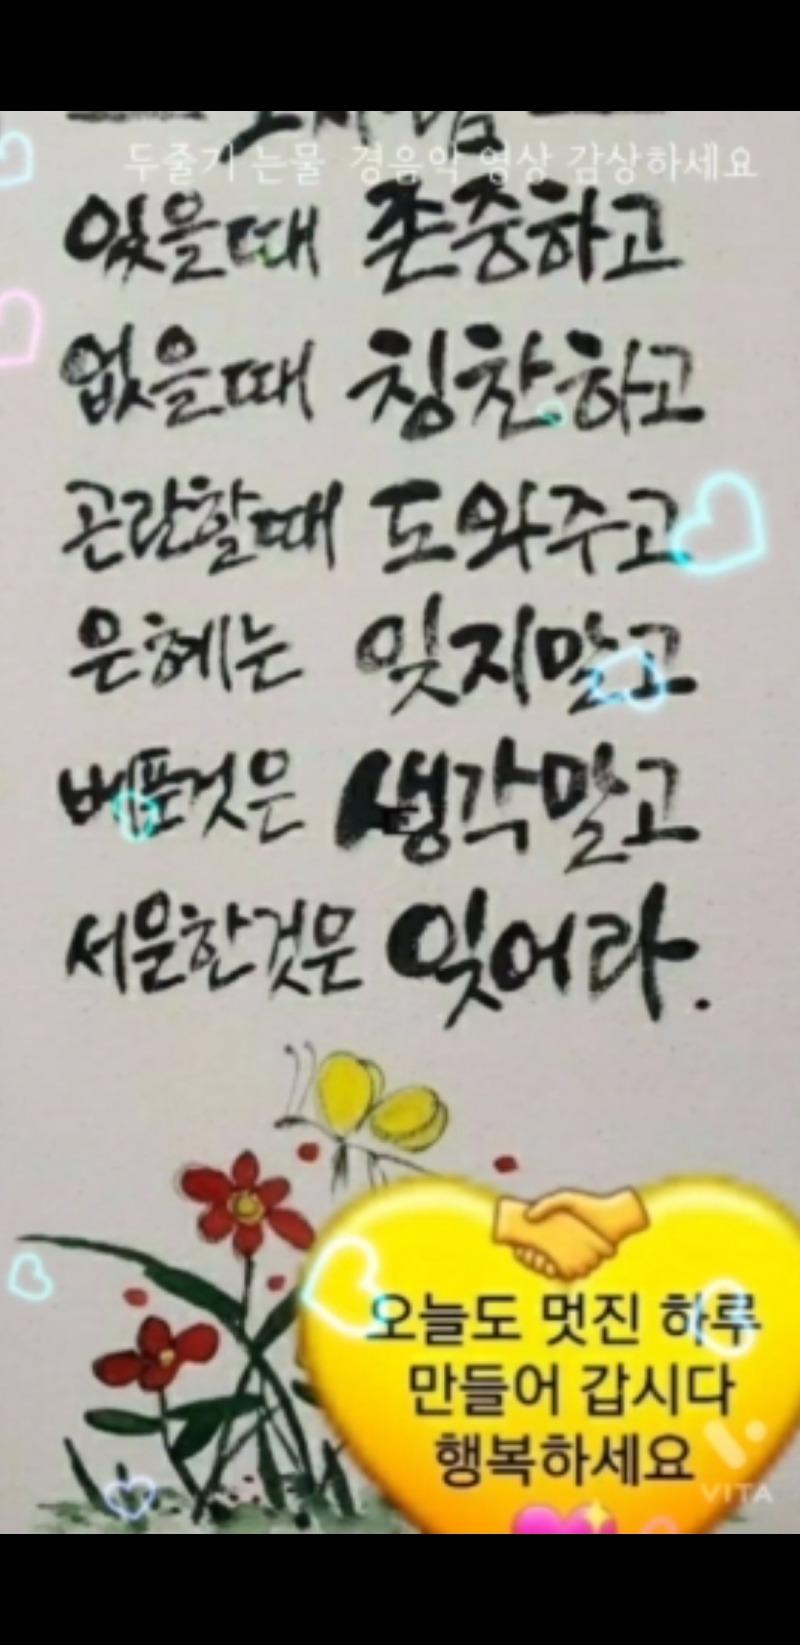 두줄기 눈물 경음악 영상 감상하세요
있을때 존중하고
없을때 칭찬하고
곤란할때 도와주고
은혜는 잊지말고
베푼것은 생각말고
서운한것은 잊어라.
오늘도 멋진 하루
만들어 갑시다
행복하세요
VITA